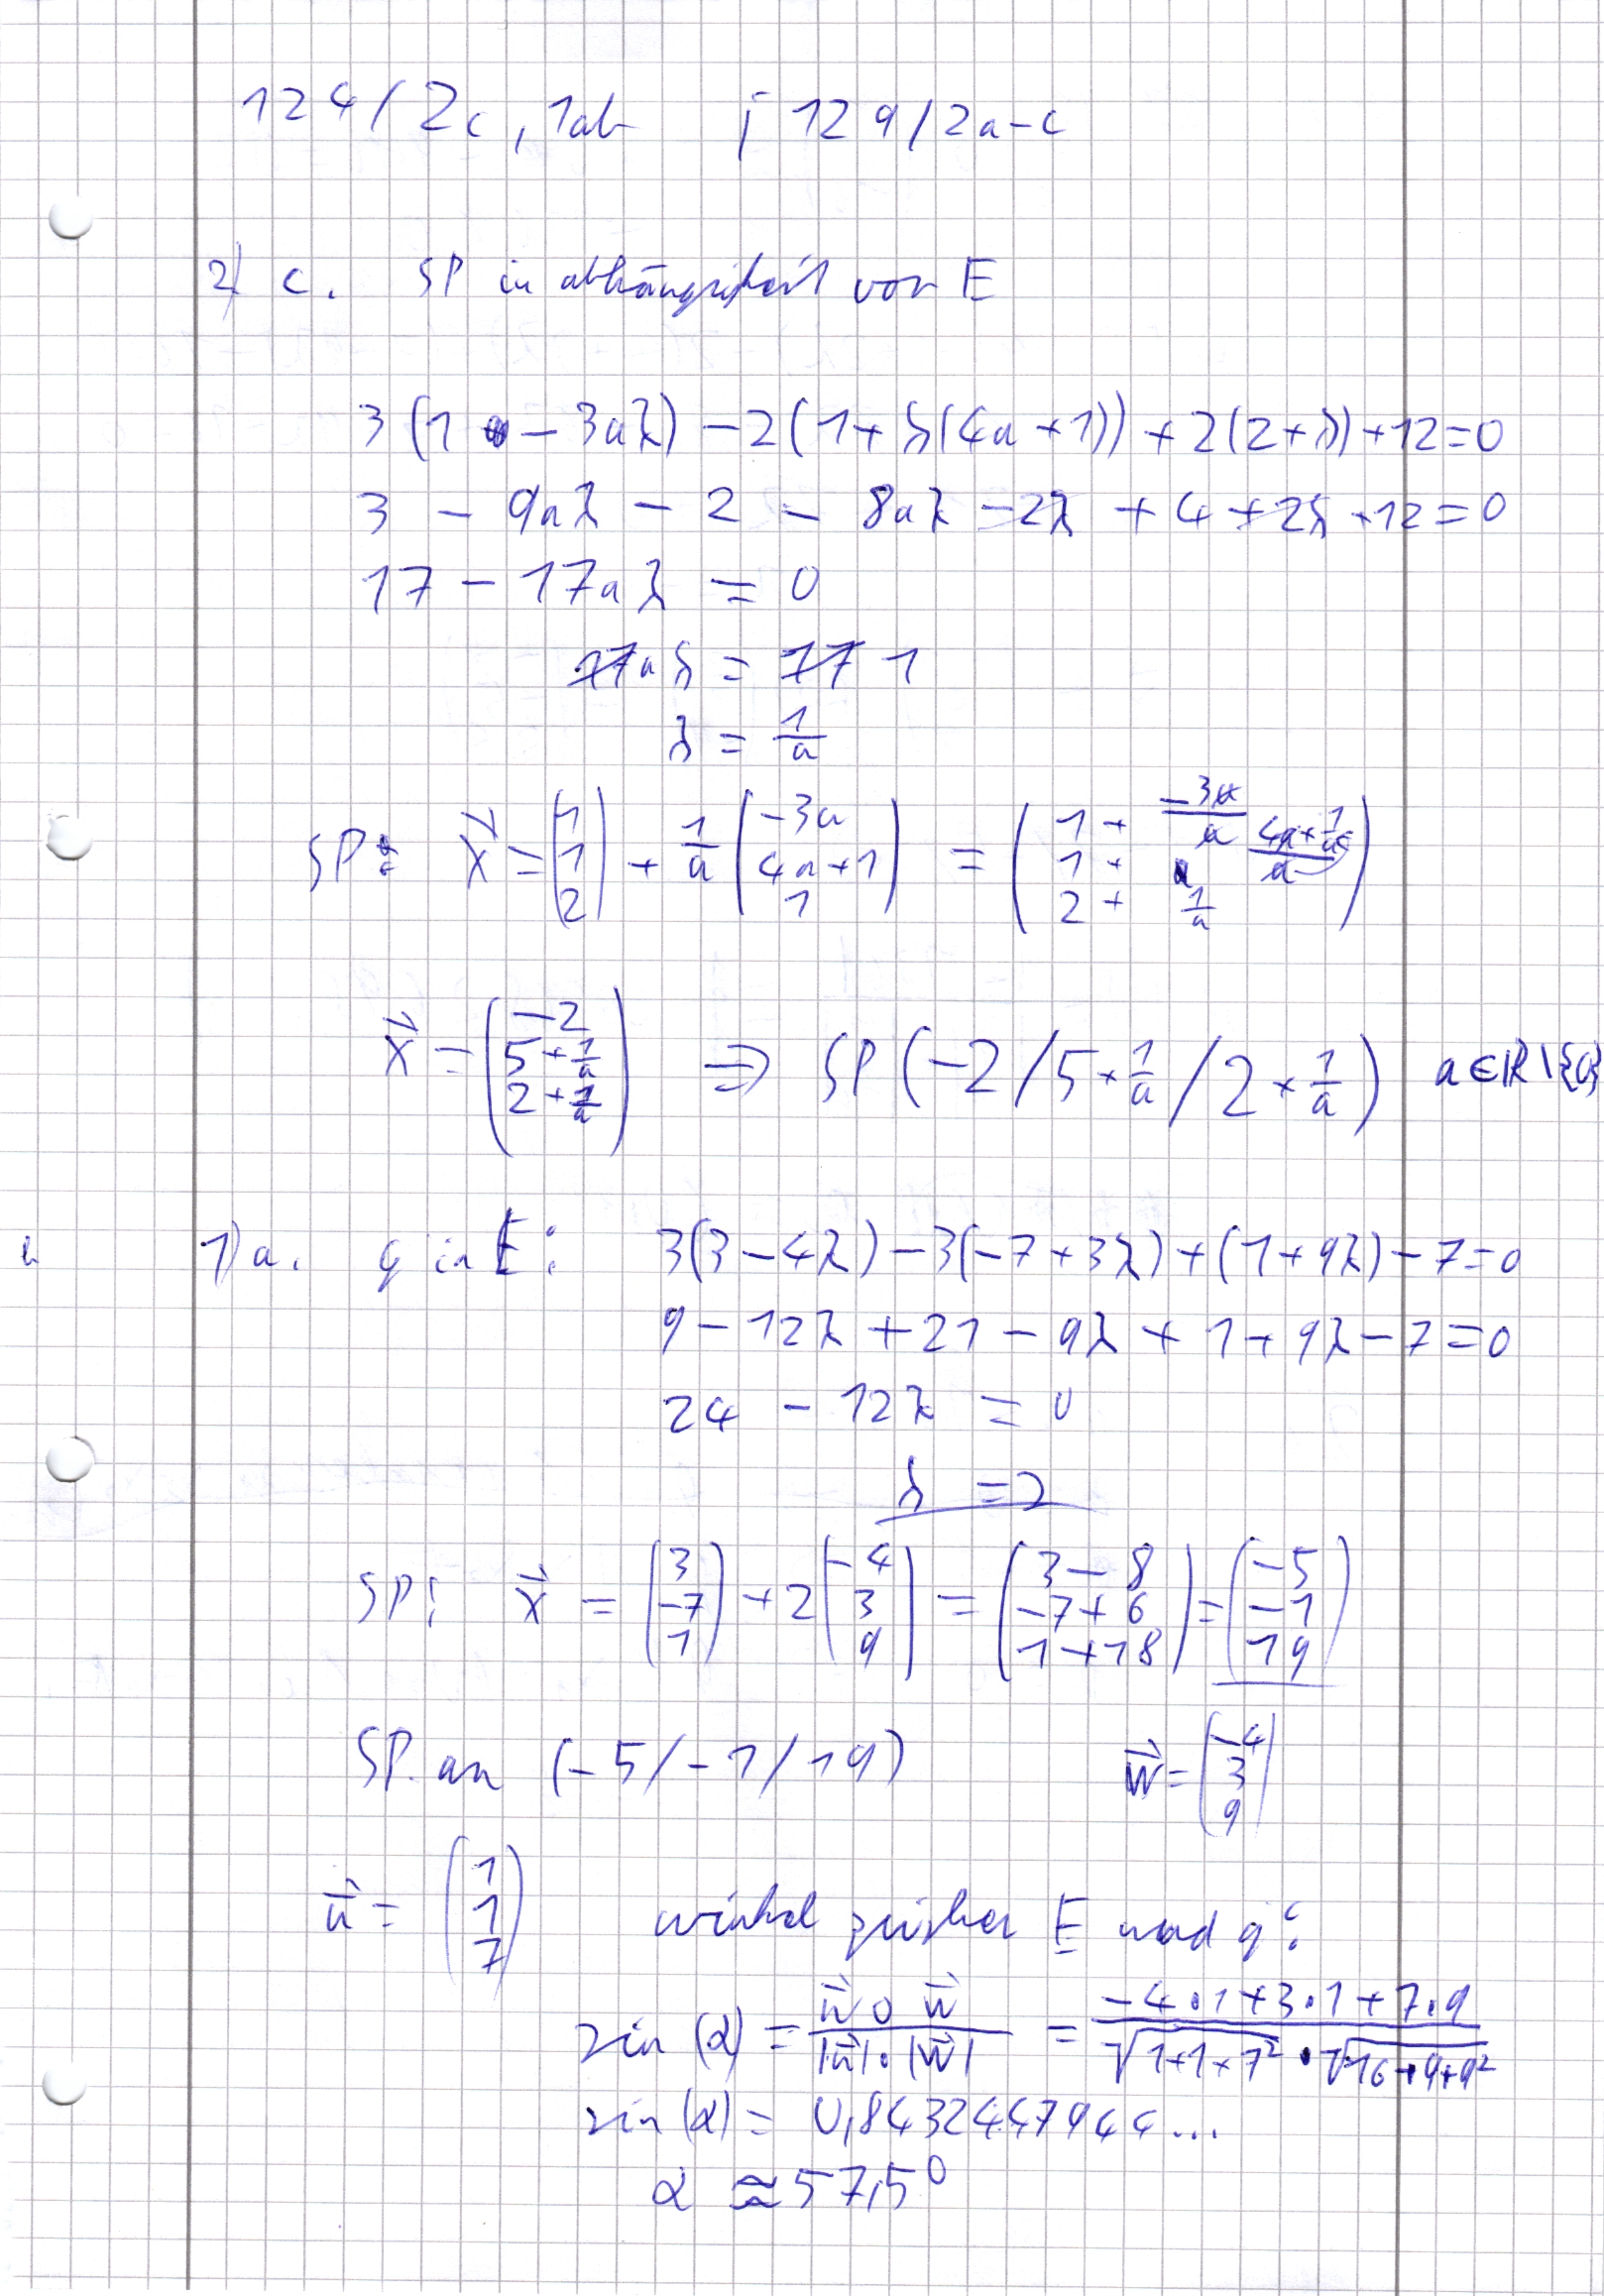 124/2c, 1ab ; 129/2a-c
2) c. SP in abhängigkeit von E
3(1 - 3aλ) - 2(1 + λ(4a + 1)) + 2(2 + λ) + 12 = 0
3 - 9aλ - 2 - 8aλ - 2λ + 4 + 2λ + 12 = 0
17 - 17aλ = 0
17aλ = 17 1
λ = 1/a
SP: x⃗ = (1 1 2) + 1/a (-3a 4a+1 1) = (1 + -3a/a 1 + 4a+1/a 2 + 1/a)
x⃗ = (-2 5+1/a 2+1/a) ⇒ SP(-2/5+1/a/2+1/a) a∈ℝ\{0}
1) a. g in E: 3(3 - 4λ) - 3(-7 + 3λ) + (1 + 9λ) - 7 = 0
9 - 12λ + 21 - 9λ + 1 + 9λ - 7 = 0
24 - 12λ = 0
λ = 2
SP: x⃗ = (3 -7 1) + 2(-4 3 9) = (3-8 -7+6 1+18) = (-5 -1 19)
SP. an (-5/-1/19) w⃗ = (-4 3 9)
n⃗ = (1 1 7) winkel zwischen E und g:
sin(α) = n⃗ ∘ w⃗ / |n⃗| · |w⃗| = -4·1+3·1+7·9 / √1+1+7² · √16+9+9²
sin(α) = 0,8432447944...
α ≈ 57,5°